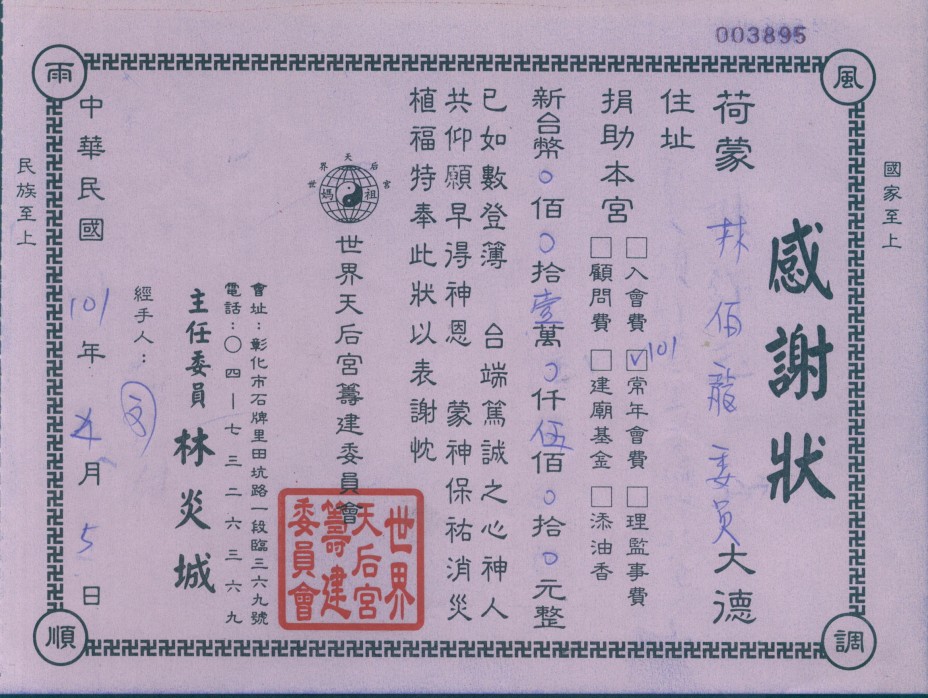 003895
國家至上
風調雨順
感謝狀
荷蒙 林佰龍委員大德
住址
捐助本宮
□入會費 ☑101常年會費 □理監事費
□顧問費 □建廟基金 □添油香
新台幣0佰0拾壹萬0仟伍佰0拾0元整
已如數登簿 台端篤誠之心神人
共仰願早得神恩 蒙神保祐消災
植福特奉此狀以表謝忱
世界天后宮
媽祖
世界天后宮籌建委員會
世界天后宮籌建委員會
會址:彰化市石牌里田坑路一段臨三六九號
電話:〇四-七三二六三六九
主任委員 林炎城
經手人:
中華民國101年 月5日
民族至上